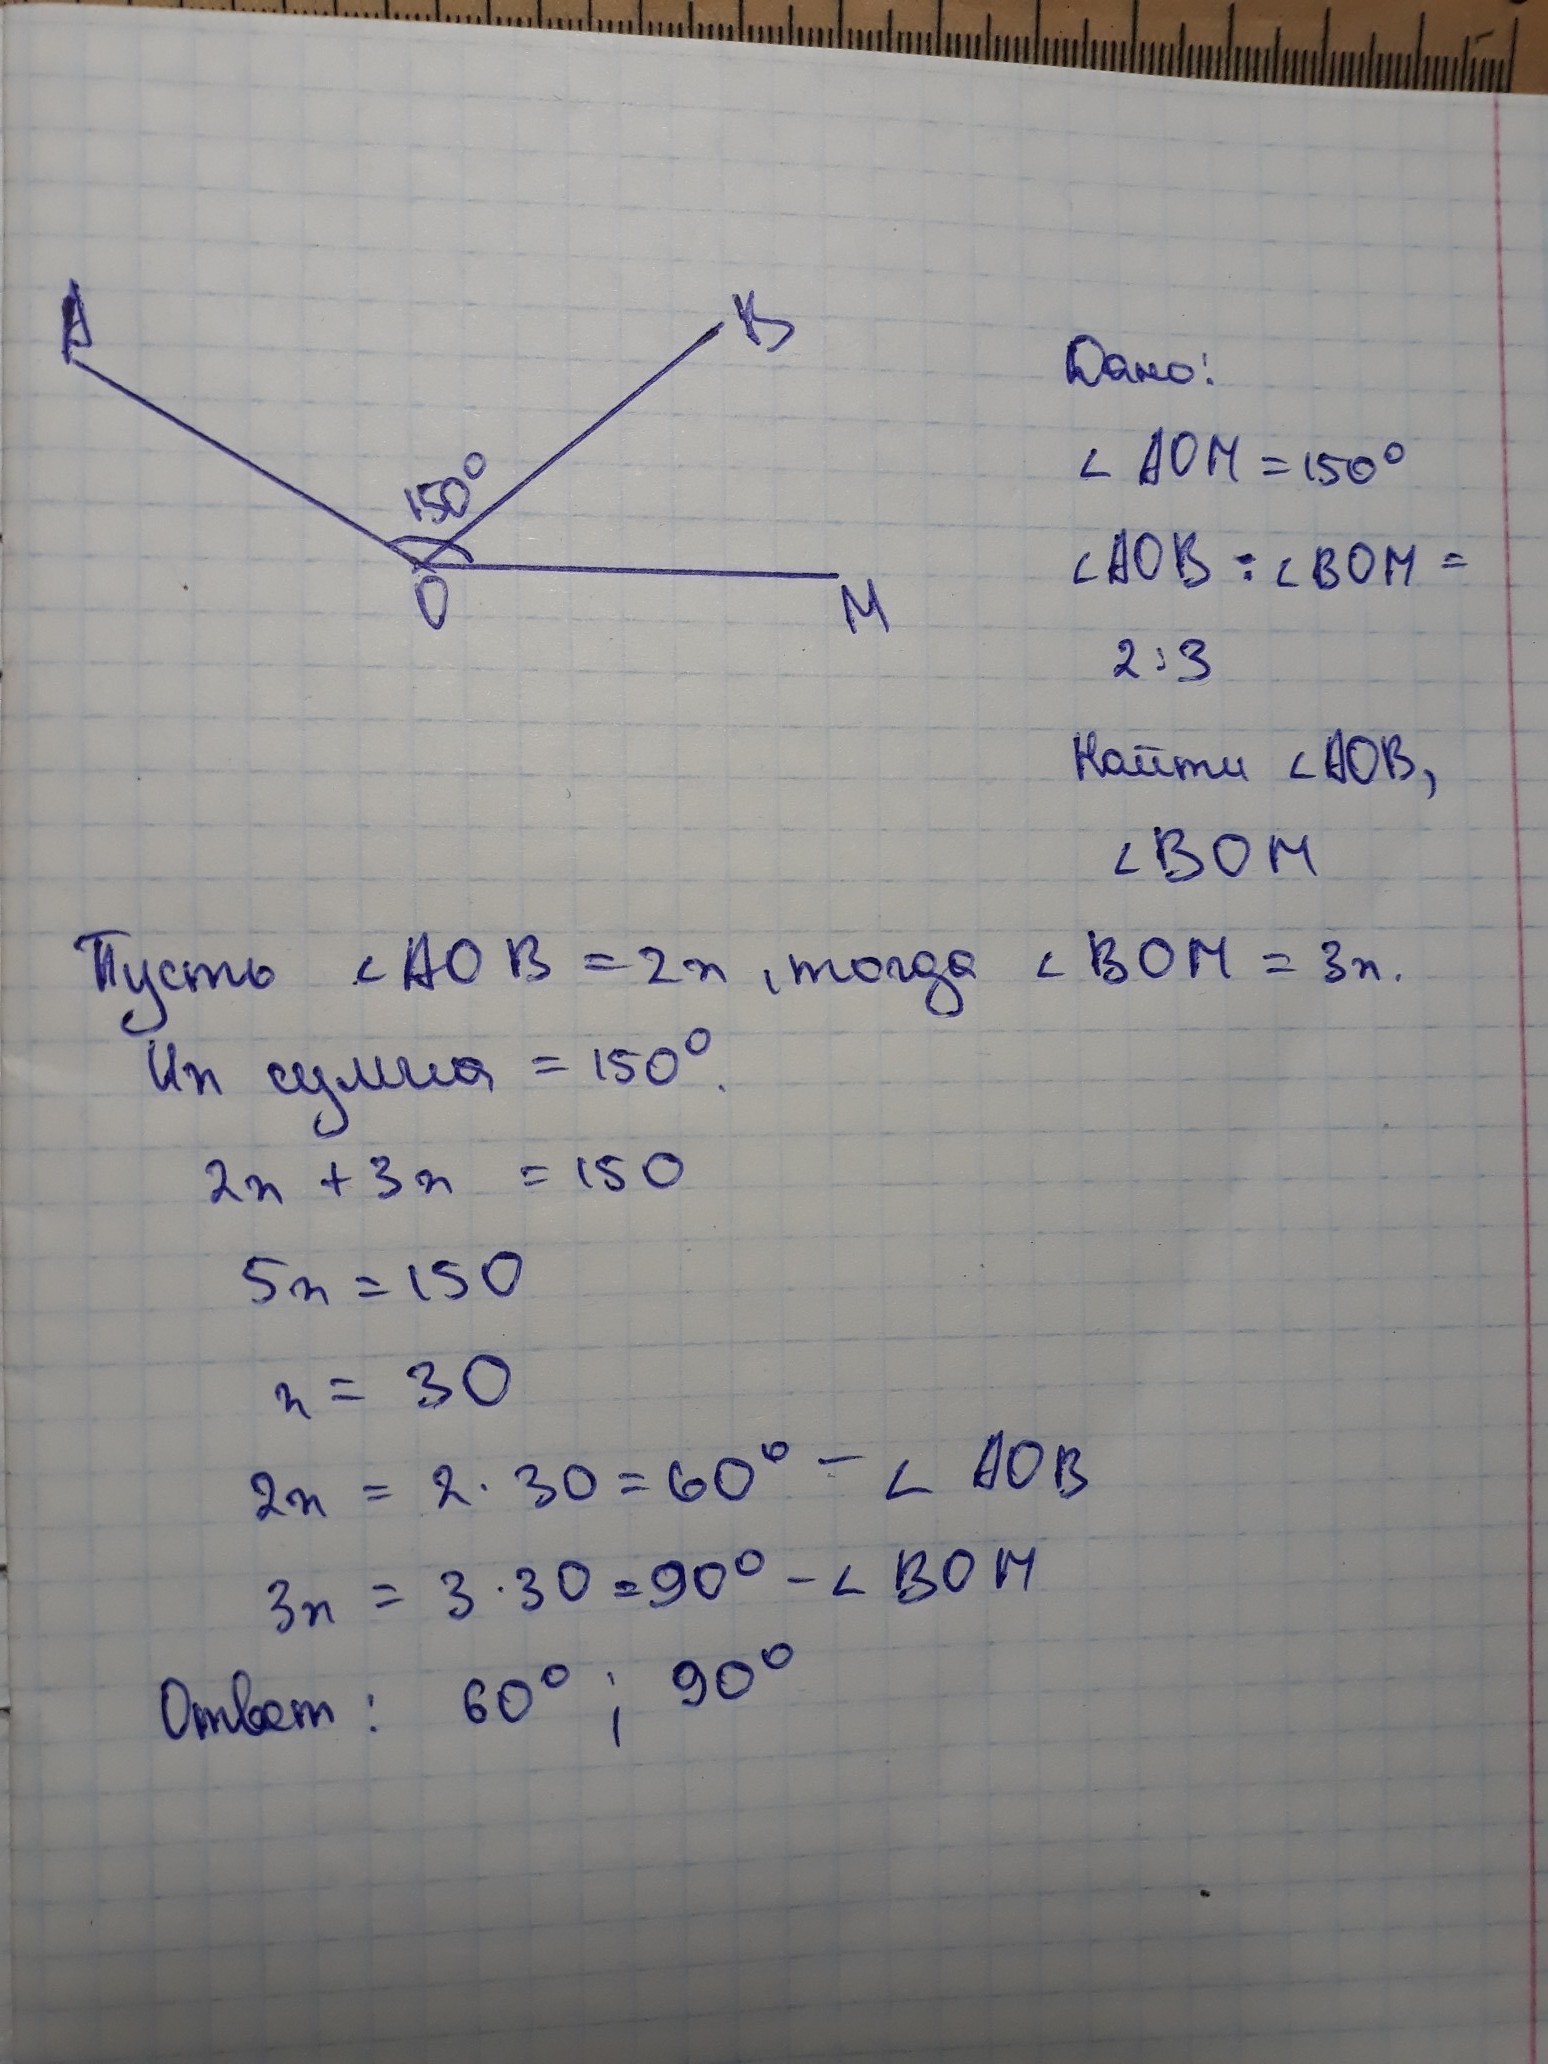 A
B
150°
O
M
Дано:
∠ AOM = 150°
∠AOB : ∠BOM =
2:3
Найти ∠AOB,
∠BOM
Пусть ∠AOB = 2x, тогда ∠BOM = 3x.
Их сумма = 150°.
2x + 3x = 150
5x = 150
x = 30
2x = 2·30 = 60° – ∠ AOB
3x = 3·30 = 90° – ∠ BOM
Ответ: 60°; 90°